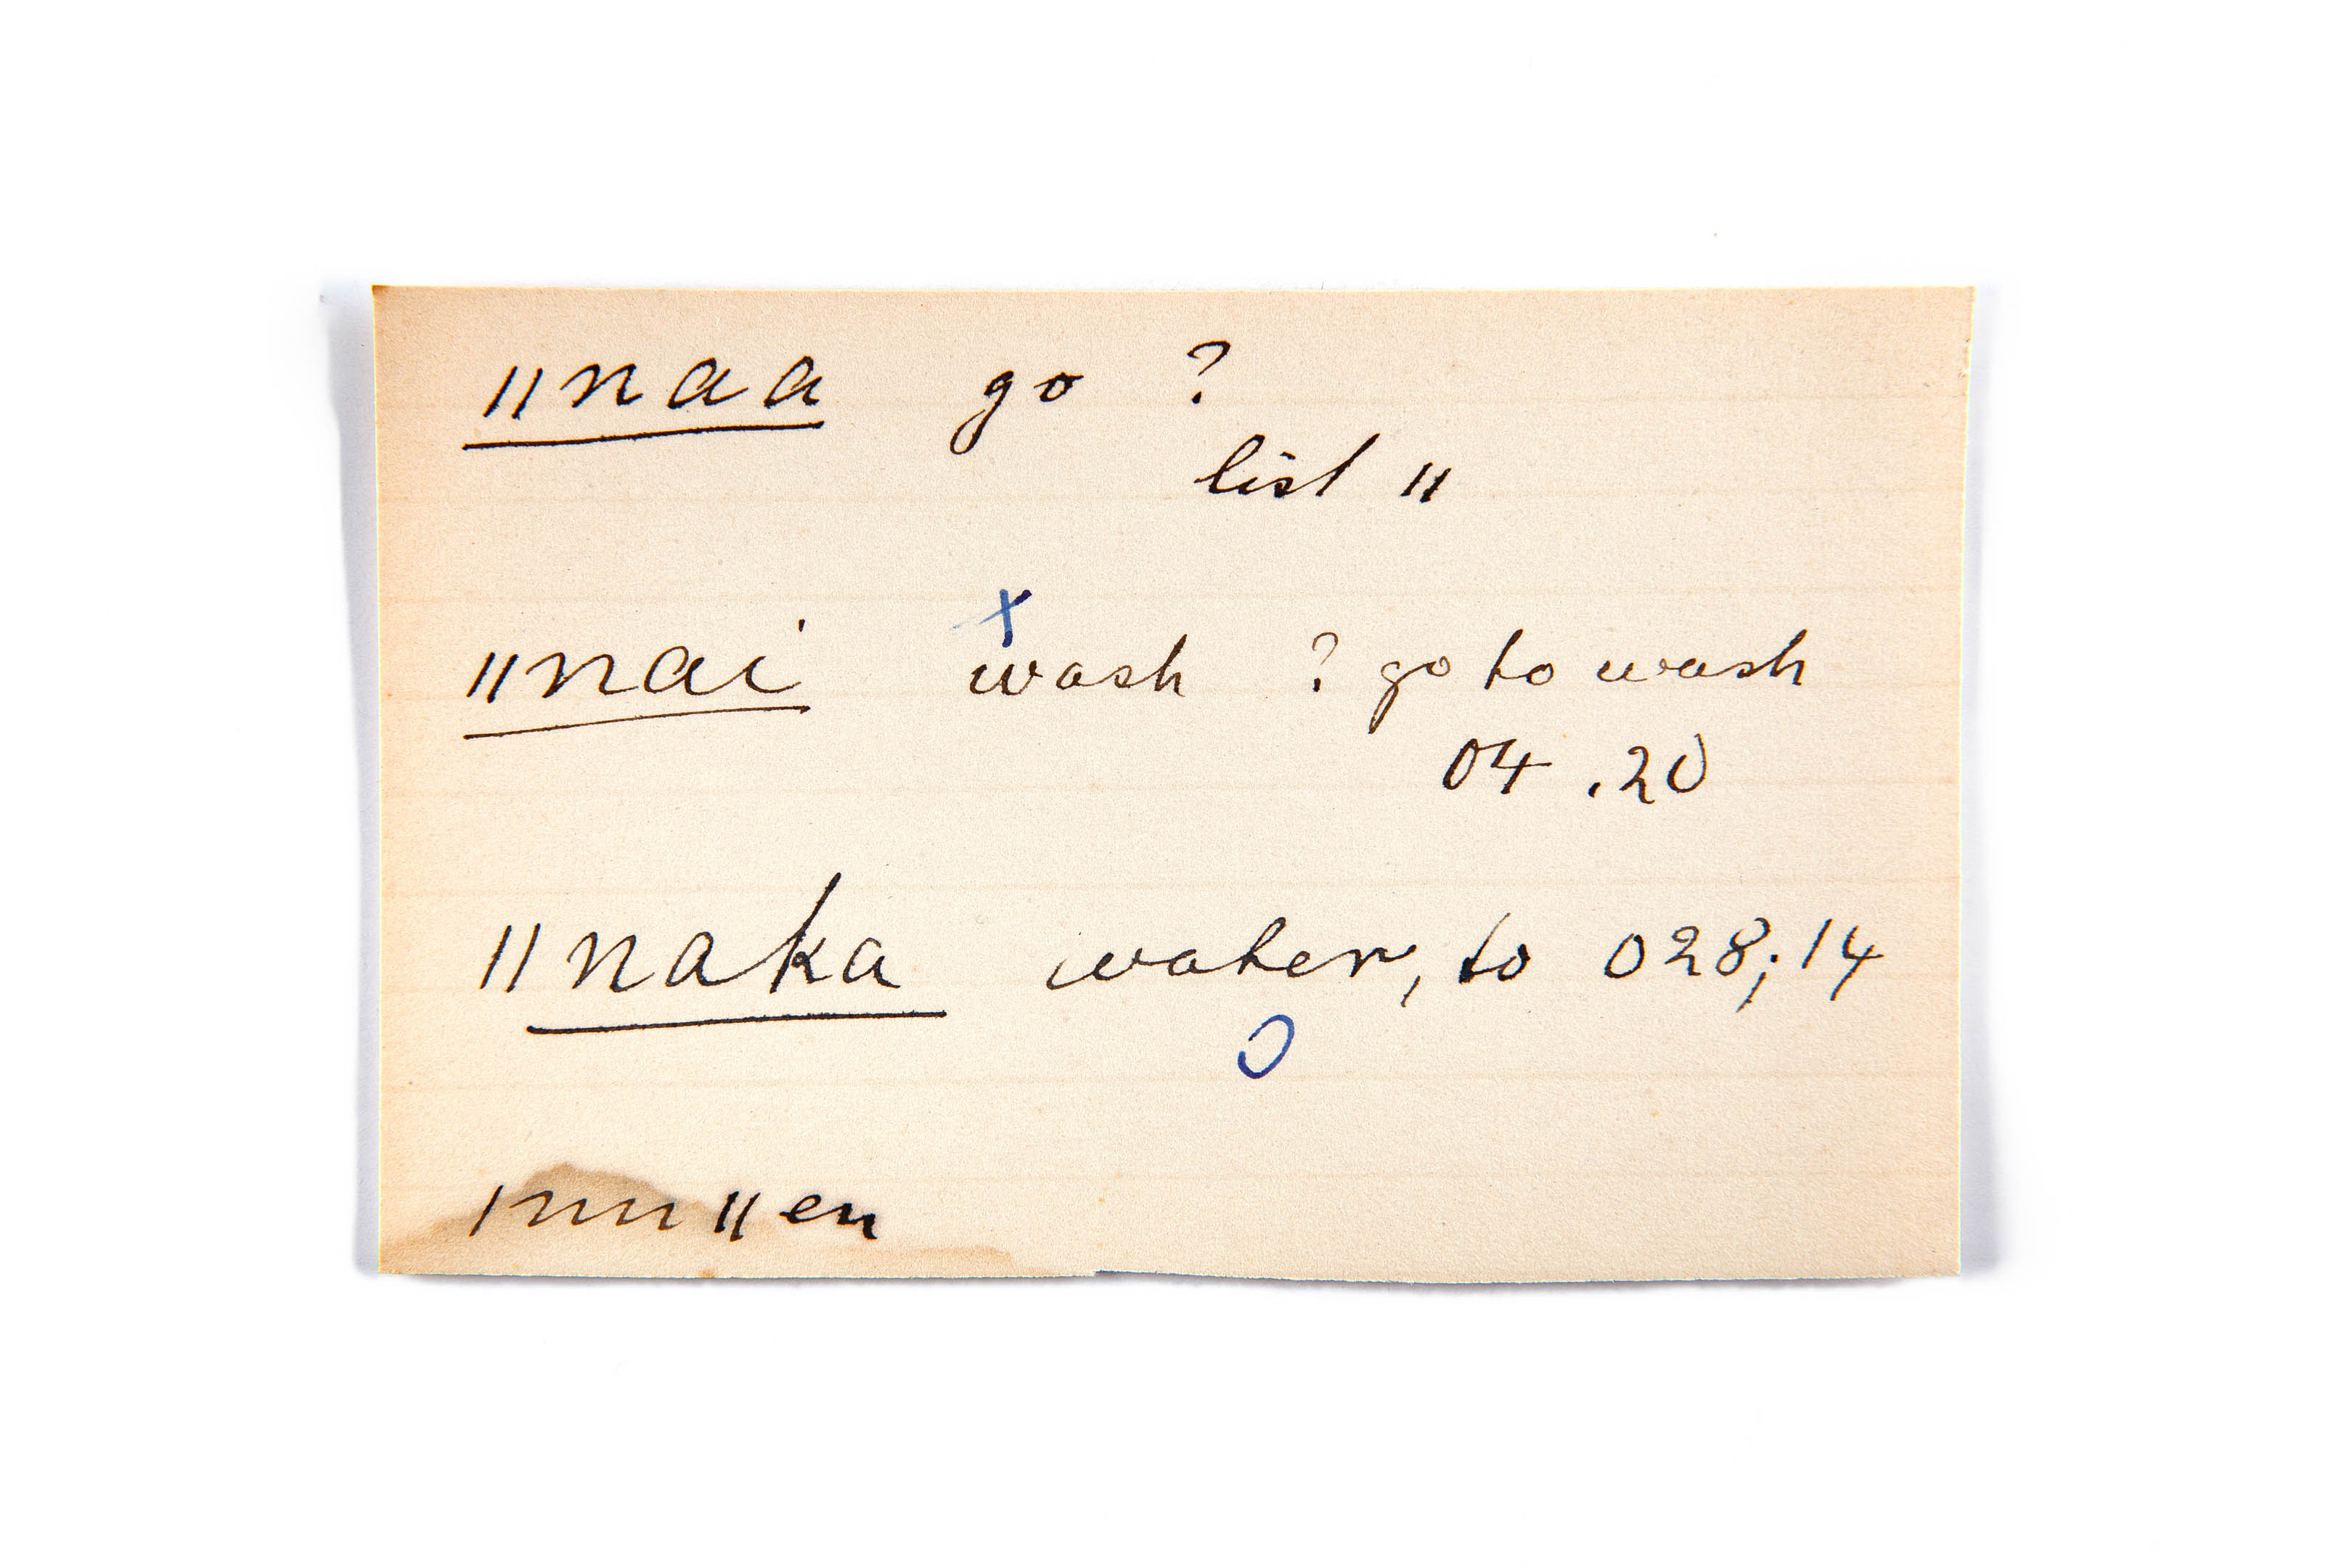 ǁnaa go ?
list ǁ
x
ǁnai wash ? go to wash
04 .20
ǁnaka water, to 028;14
O
ǀnuǁen